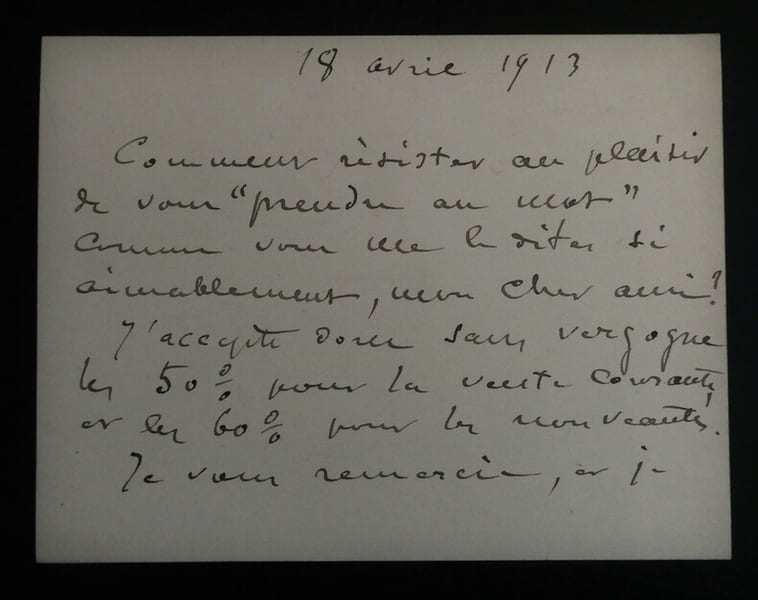 18 avril 1913
Comment résister au plaisir
de vous "prendre au mot"
comme vous me le dites si
aimablement, mon cher ami?
J'accepte donc sans vergogne
les 50% pour la vente courante,
et les 60% pour les nouveautés.
Je vous remercie, et je